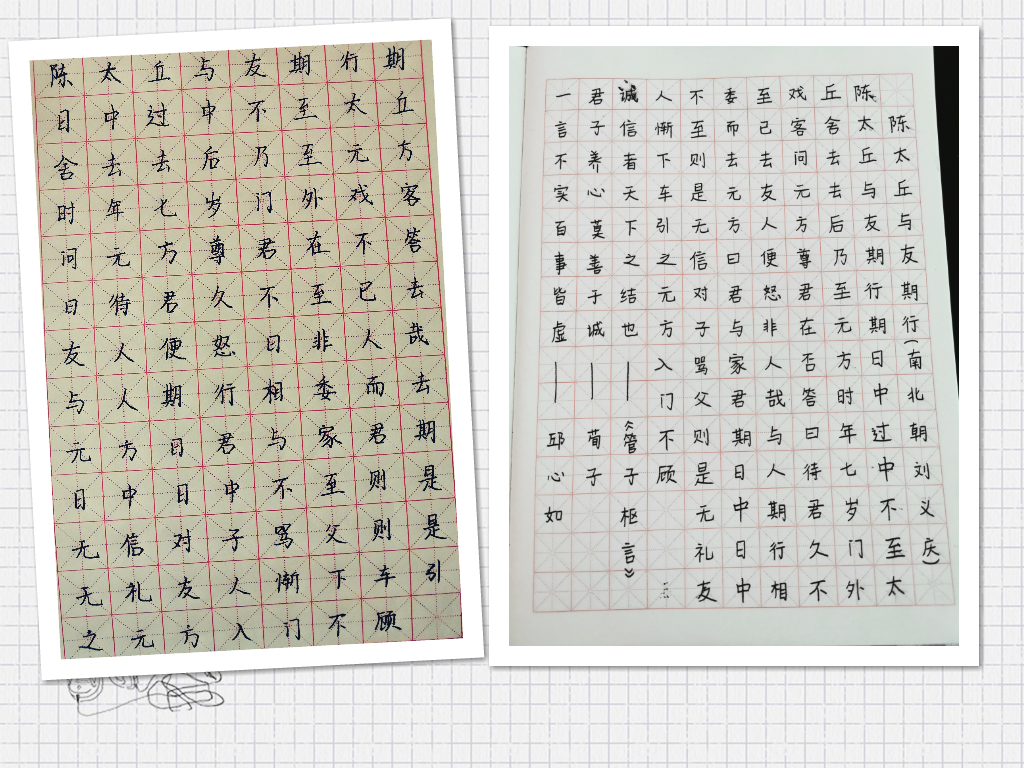 陈太丘与友期行期
日中过中不至太丘
舍去去后乃至元方
时年七岁门外戏客
问元方尊君在不答
曰待君久不至已去
友人便怒曰非人哉
与人期行相委而去
元方曰君与家君期
日中日中不至则是
无信对子骂父则是
无礼友人惭下车引
之元方入门不顾
陈太丘与友期行(南北朝刘义庆)
陈太丘与友期行期日中过中不至太
丘舍去去后乃至元方时年七岁门外
戏客问元方尊君在否答曰待君久不
至已去友人便怒非人哉与人期行相
委而去元方曰君与家君期日中日中
不至则是无信对子骂父则是无礼友
人惭下车引之元方入门不顾
诚信者天下之结也——《管子 枢言》
君子养心莫善于诚——荀子
一言不实百事皆虚——邱心如